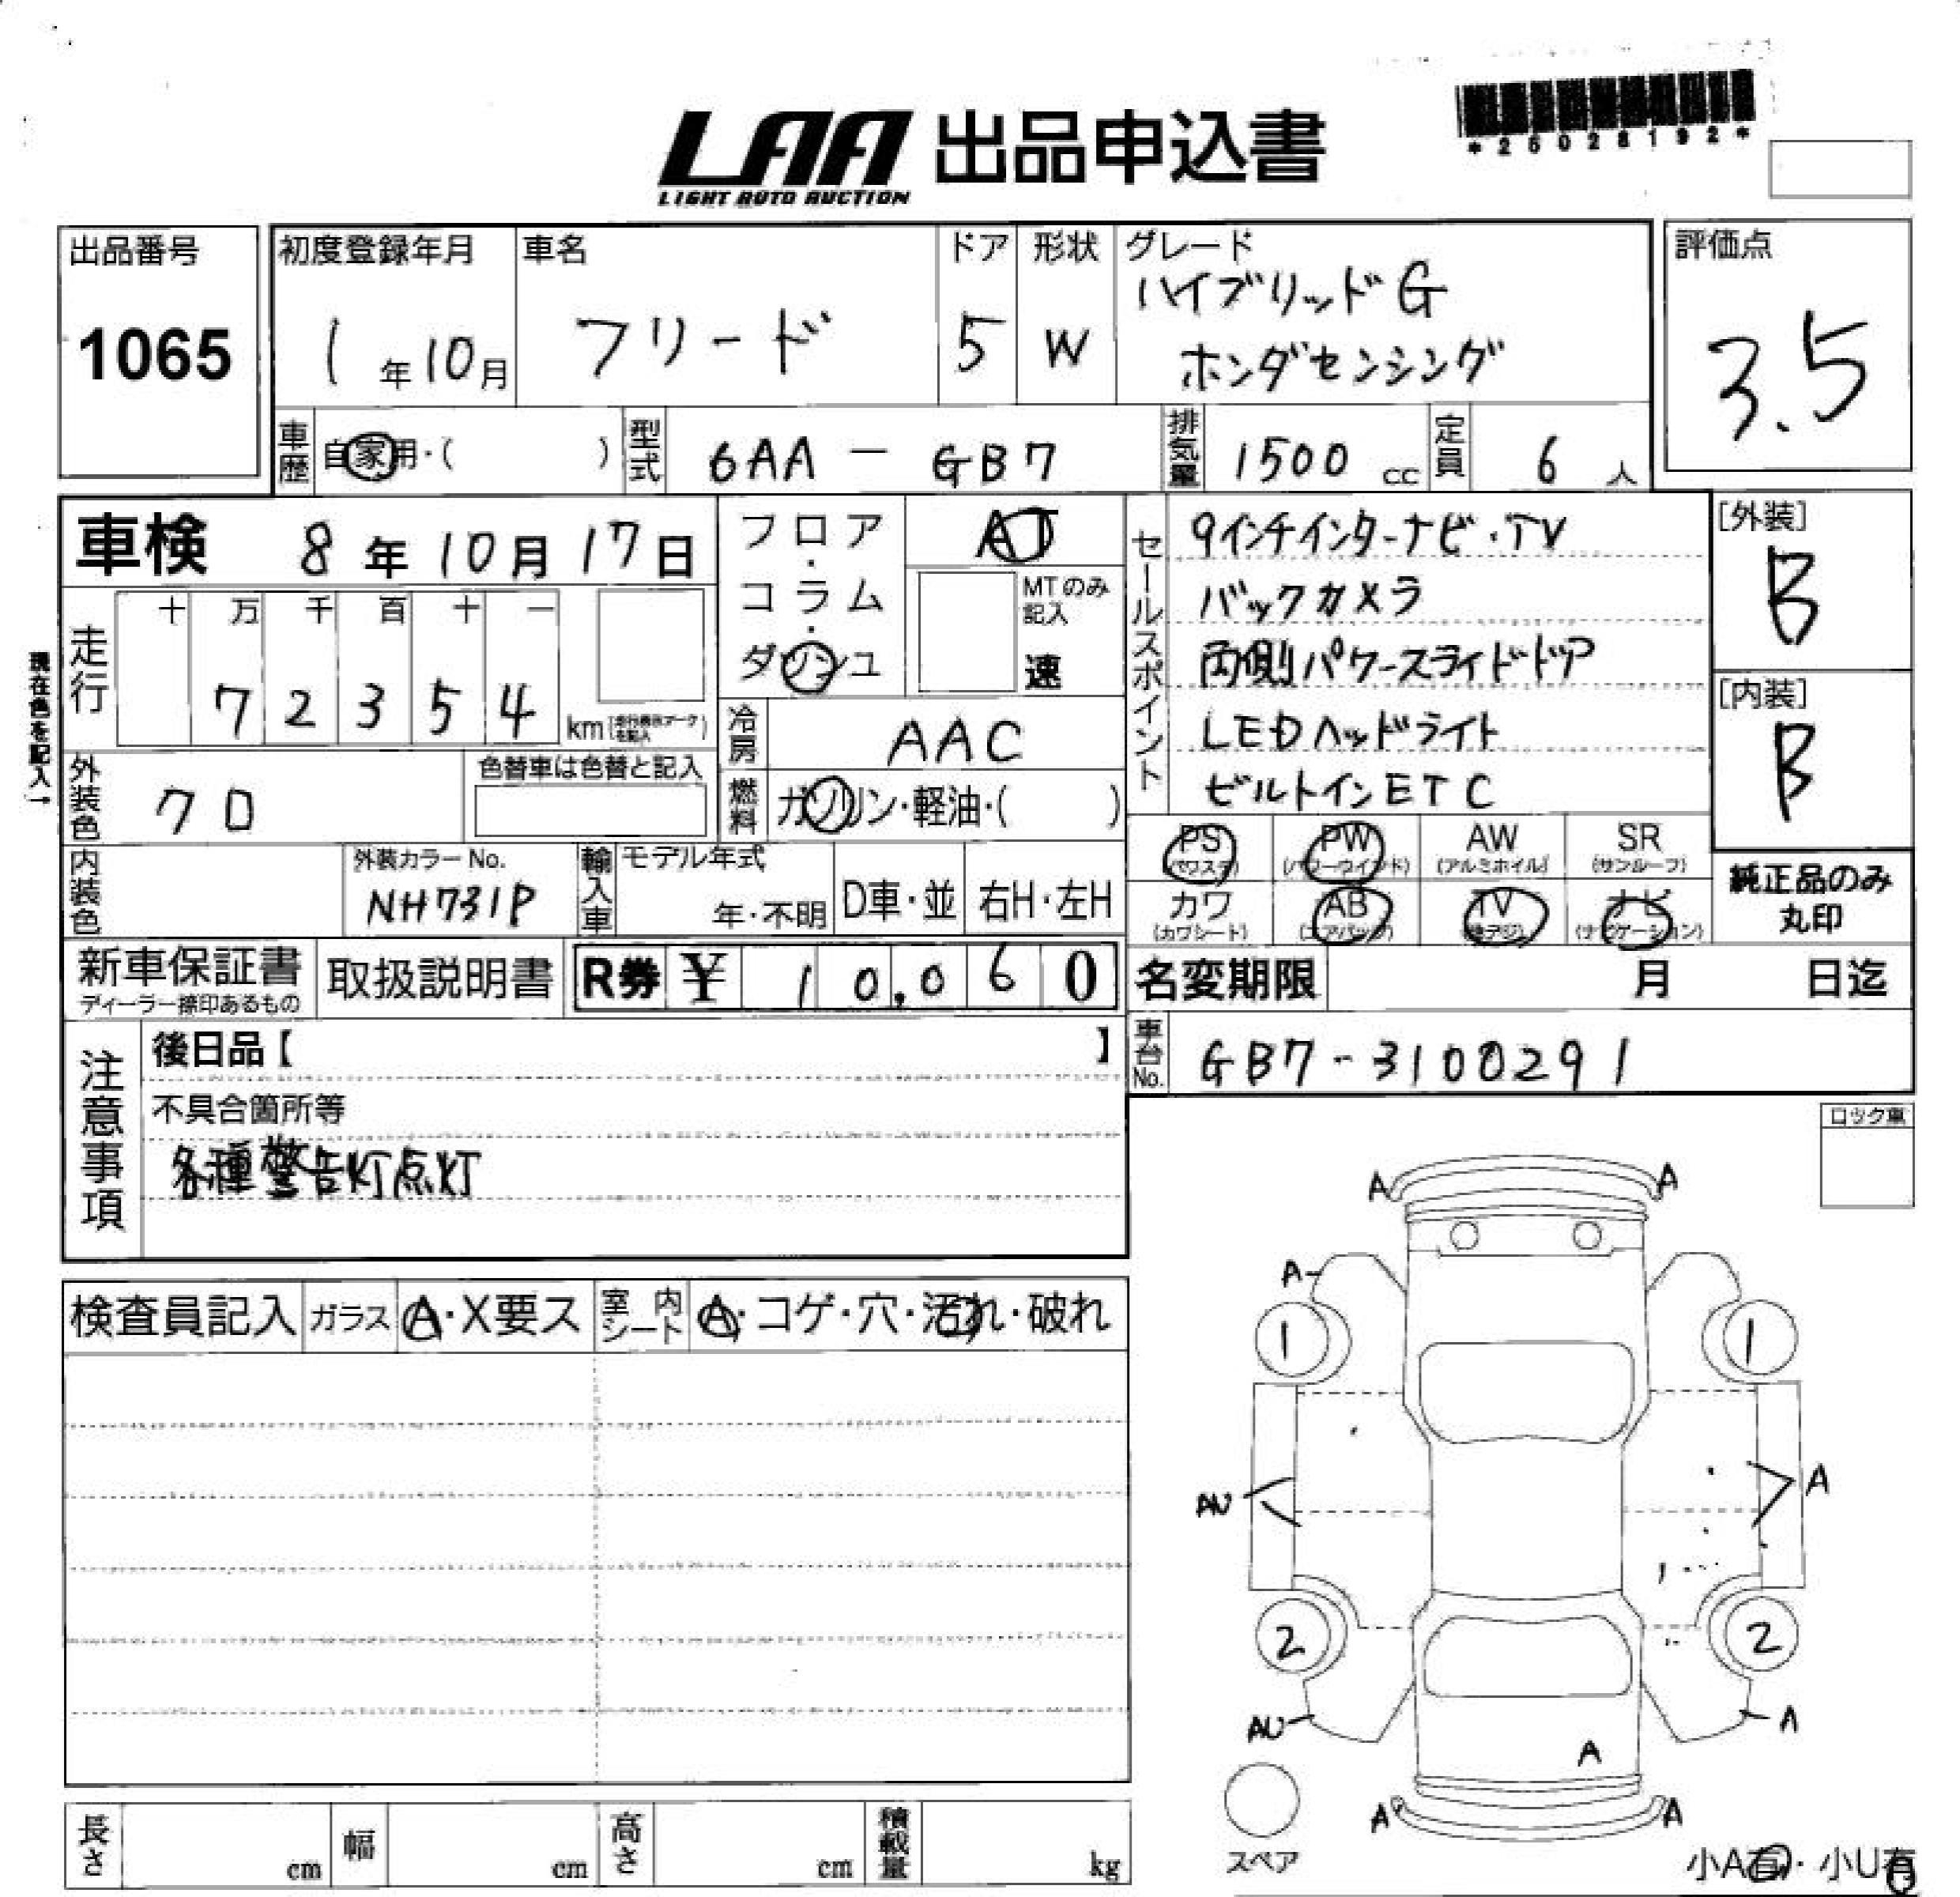 LAA 出品申込書
LIGHT AUTO AUCTION
*25028192*
出品番号
1065
初度登録年月
1年10月
車名
フリード
ドア
5
形状
W
グレード
ハイブリッドG
ホンダセンシング
評価点
3.5
車歴
自家用・( )
型式
6AA - GB7
排気量
1500 cc
定員
6 人
車検 8年10月17日
フロア・コラム・ダッシュ
AT
MTのみ記入
速
セールスポイント
9インチインターナビ・TV
バックカメラ
両側パワースライドドア
LEDヘッドライト
ビルトインETC
[外装]
B
[内装]
B
現在色を記入→
走行
十 万 千 百 十 一
7 2 3 5 4 km
冷房
AAC
外装色
クロ
色替車は色替と記入
燃料
ガソリン・軽油・( )
PS (パワステ)
PW (パワーウインド)
AW (アルミホイル)
SR (サンルーフ)
カワ (カワシート)
AB (エアバッグ)
TV (地デジ)
ナビ (ナビゲーション)
純正品のみ
丸印
内装色
外装カラーNo.
NH731P
輸入車
モデル年式
年・不明
D車・並
右H・左H
新車保証書
ディーラー捺印あるもの
取扱説明書
R券 ¥ 10,060
名変期限 月 日迄
車台No.
GB7-3100291
注意事項
後日品【 】
不具合箇所等
各種警告灯点灯
ロック車
検査員記入
ガラス
A・X要ス
室内シート
A・コゲ・穴・汚れ・破れ
A A
A
1 1
AU A
2 2
AU A
A
A A
スペア
小A有・小U有
長さ cm
幅 cm
高さ cm
積載量 kg